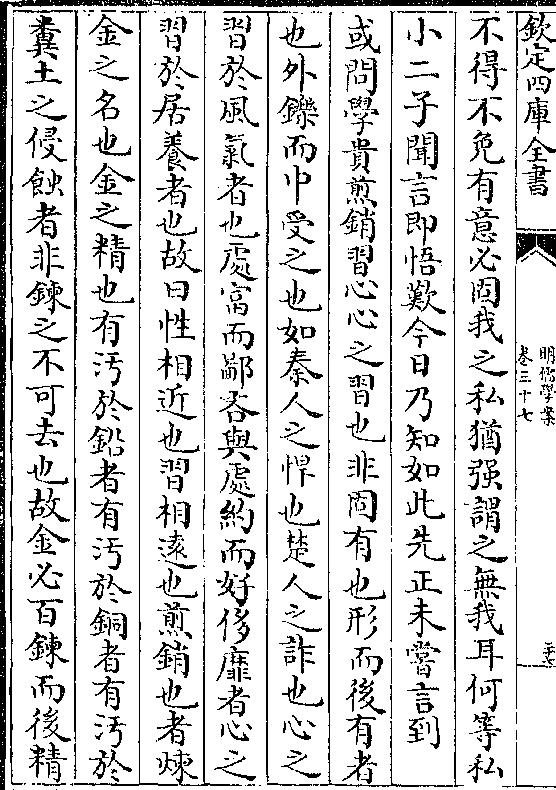 欽定四庫全書
明儒學案
卷三十七
不得不免有意必固我之私猶强謂之無我耳何等私
小二子聞言即悟歎今日乃知如此先正未嘗言到
或問學貴煎銷習心心之習也非固有也形而後有者
也外鑠而中受之也如秦人之悍也楚人之詐也心之
習於風氣者也處富而鄙吝與處約而好侈靡者心之
習於居養者也故曰性相近也習相遠也煎銷也者煉
金之名也金之精也有汚於鉛者有汚於銅者有汚於
糞土之侵蝕者非鍊之不可去也故金必百鍊而後精